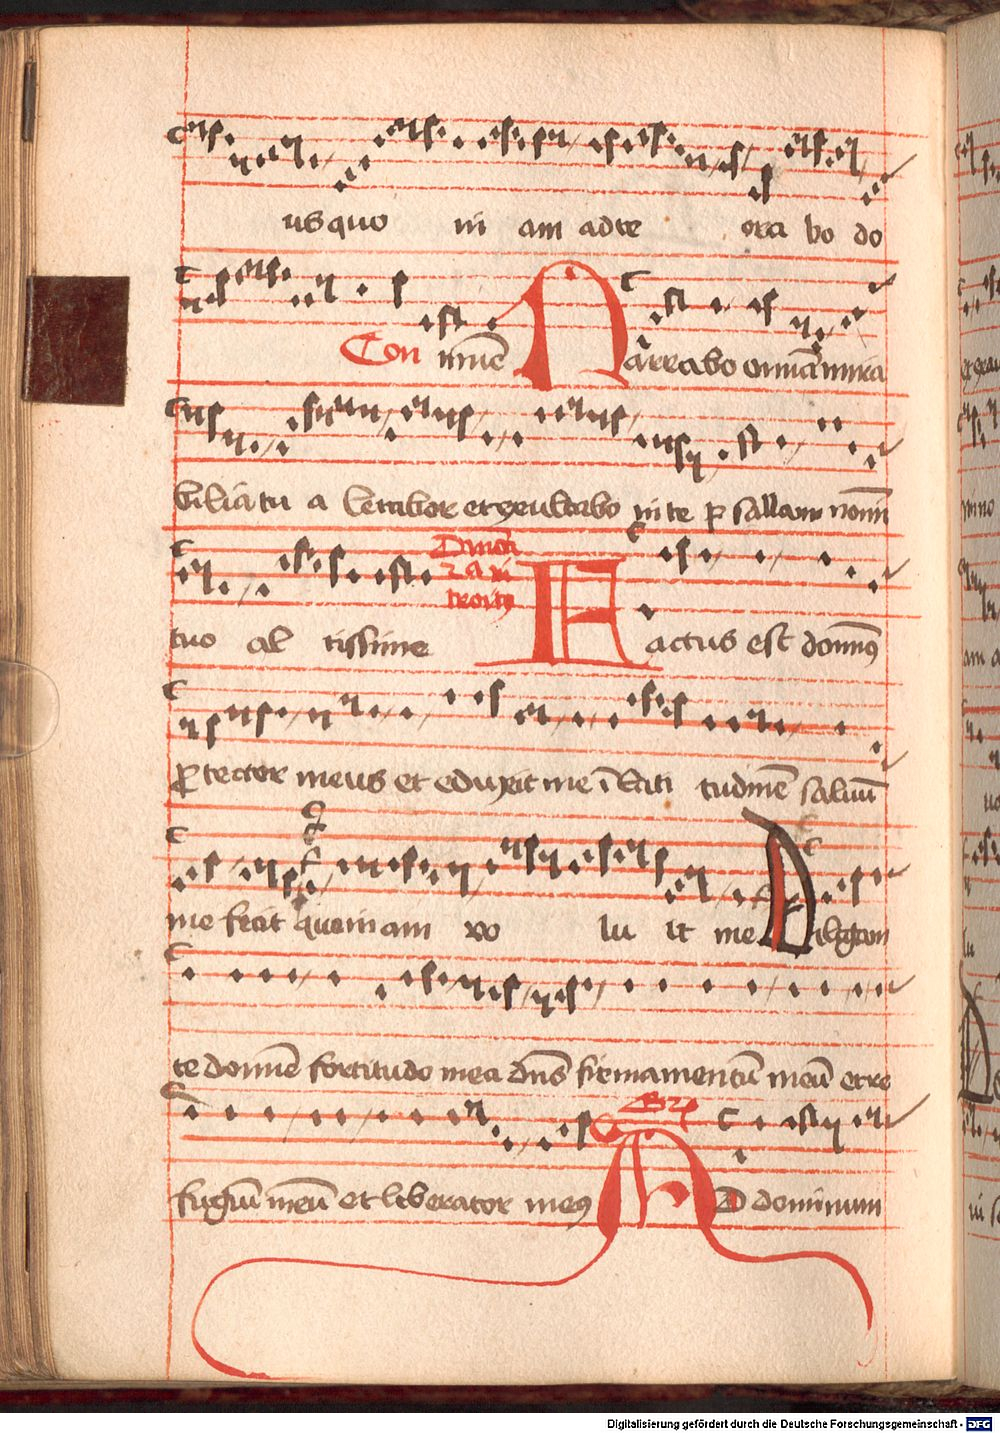 usquo ni am adre ora bo do
Com mune Narrabo omnia mira
bilia tu a letabor et exultabo in te psallam nomini
Dominica
2a in
troitus
tuo al tissime Factus est dominus
protector meus et eduxit me in lati tudinē saluū
me fecit quoniam vo lu it me Diligam
te domine fortitudo mea dns firmamentū meū et re
Gr
fugiū meū et liberator meus AD dominum
Digitalisierung gefördert durch die Deutsche Forschungsgemeinschaft - DFG